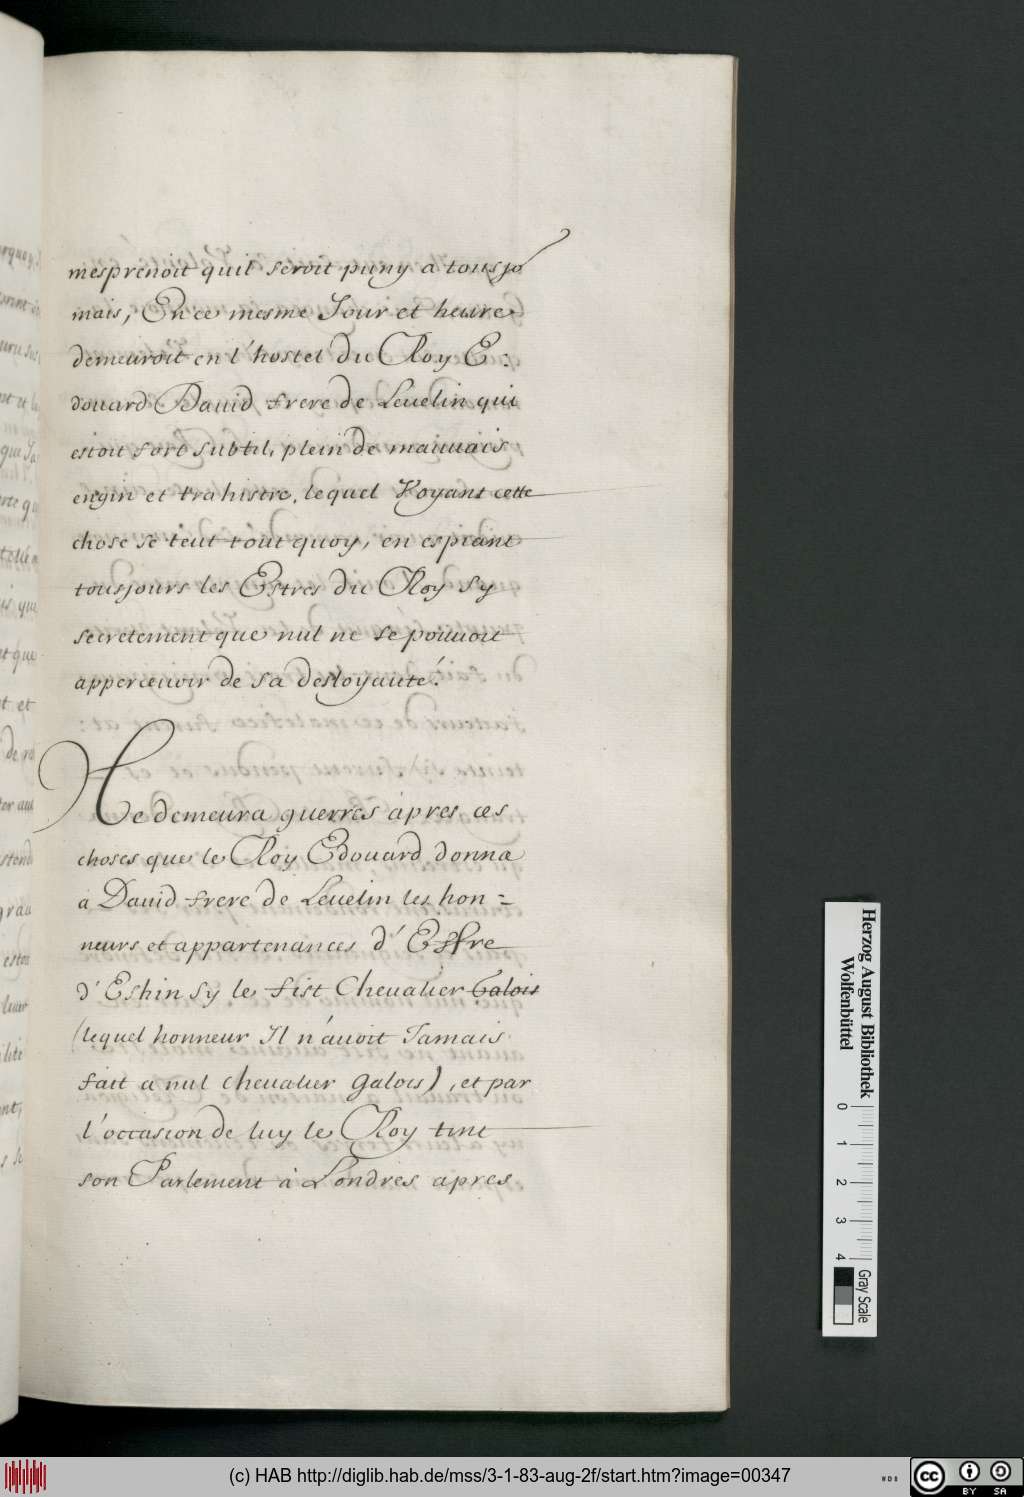 mesprenoit quil seroit puny a tousjo
mais, En ce mesme Jour et heure
demeuroit en l'hostel du Roy E:
douard Dauid frere de Leuelin qui
estoit fort subtil, plein de mauuais
engin et trahistre, lequel Voyant cette
chose se teut tout quoy, en espiant
tousjours les Estres du Roy sy
secretement que nul ne se pouuoit
apperceuoir de sa desloyauté.
Ne demeura guerres apres ces
choses que le Roy Edouard donna
à Dauid frere de Leuelin les hon=
neurs et appartenances d'Esfre
d'Eshin sy le fist Cheualier Galois
(lequel honneur Il n'auoit Jamais
fait a nul Cheualier Galois), et par
l'occasion de luy le Roy tint
son Parlement à Londres apres
Herzog August Bibliothek
Wolfenbüttel
0 1 2 3 4
Gray Scale
(c) HAB http://diglib.hab.de/mss/3-1-83-aug-2f/start.htm?image=00347
WDB
cc BY SA